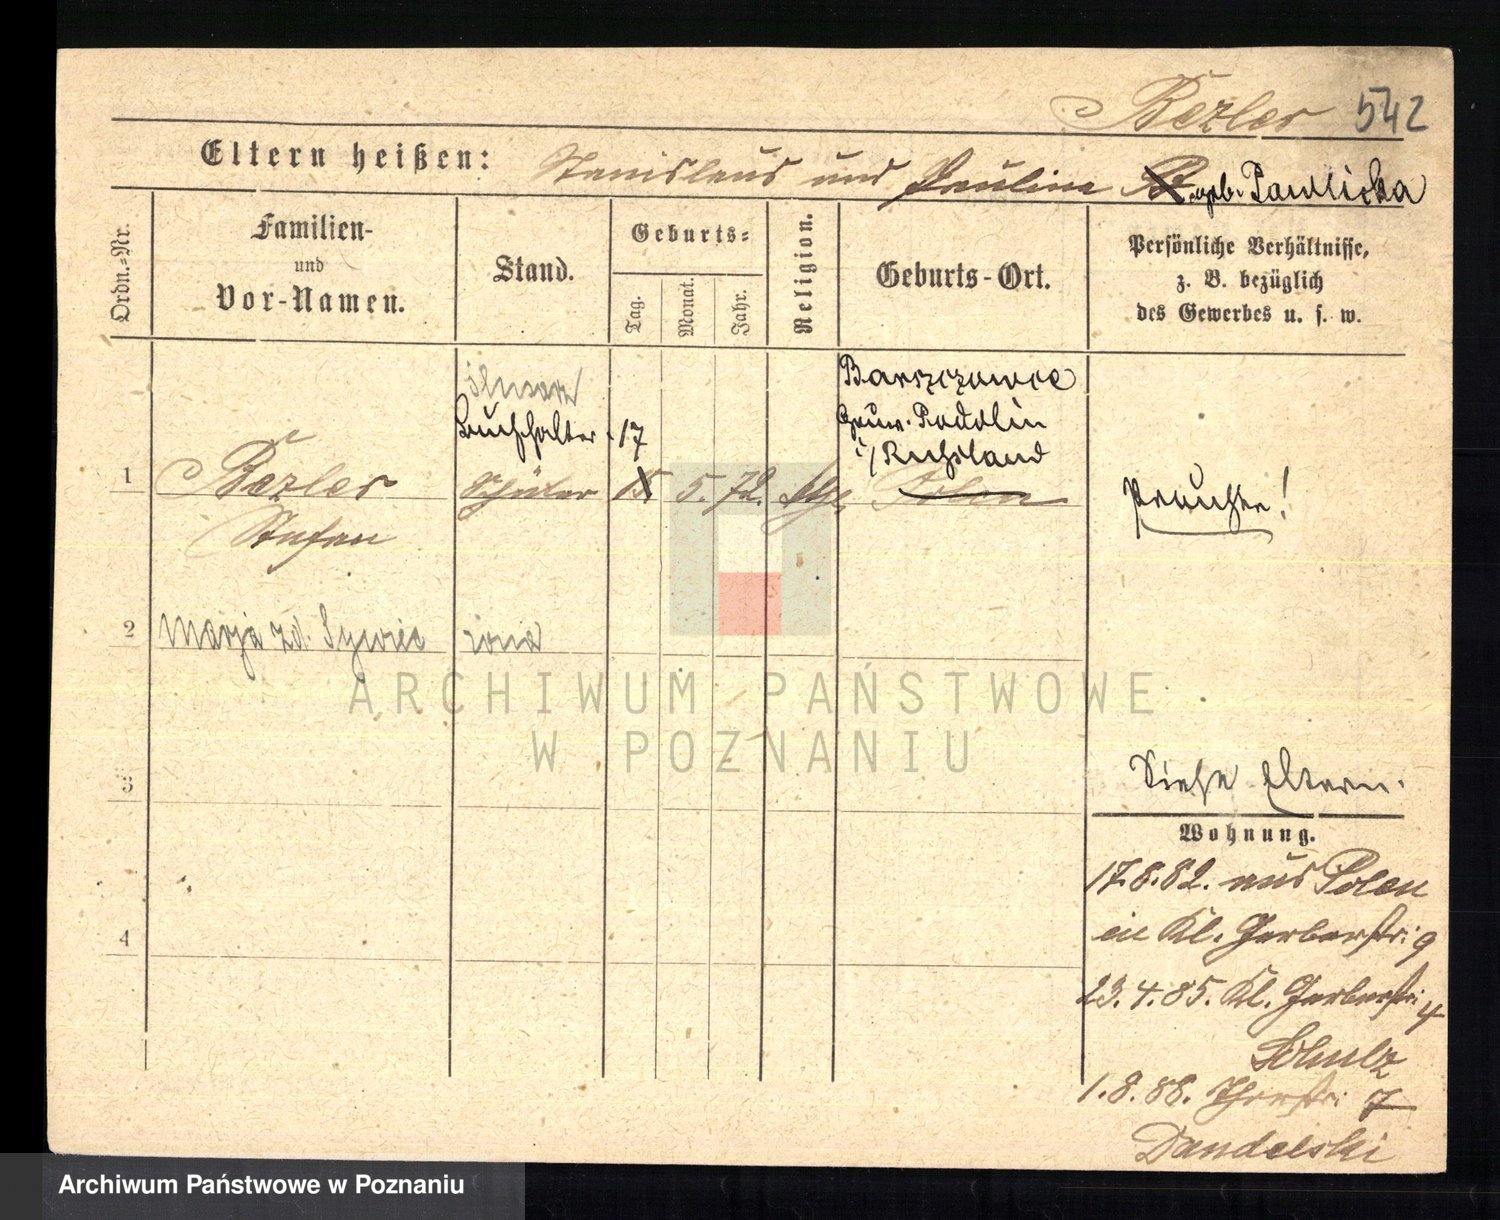 Bezler 542
Eltern heißen: Stanislaus und Pauline geb. Pawlicka
Ordn.-Nr.
Familien-
und
Vor-Namen.
Stand.
Geburts-
Tag. Monat. Jahr.
Religion.
Geburts-Ort.
Persönliche Verhältnisse,
z. B. bezüglich
des Gewerbes u. s. w.
Buchhalter
Gouv. Podolin
i/ Russland
1 Bezler Schüler 17 15 5. 72. Polen
Stefan
2 Marja zd. Żywiec żona
3
4
Siehe Eltern.
Wohnung.
17.8.82. aus Polen
in Kl. Gerberstr: 9
23.4.85. Kl. Gerberstr: 4
Scholz
1.8.88. Thorstr: 7
Dandelski
ARCHIWUM PAŃSTWOWE
W POZNANIU
Archiwum Państwowe w Poznaniu